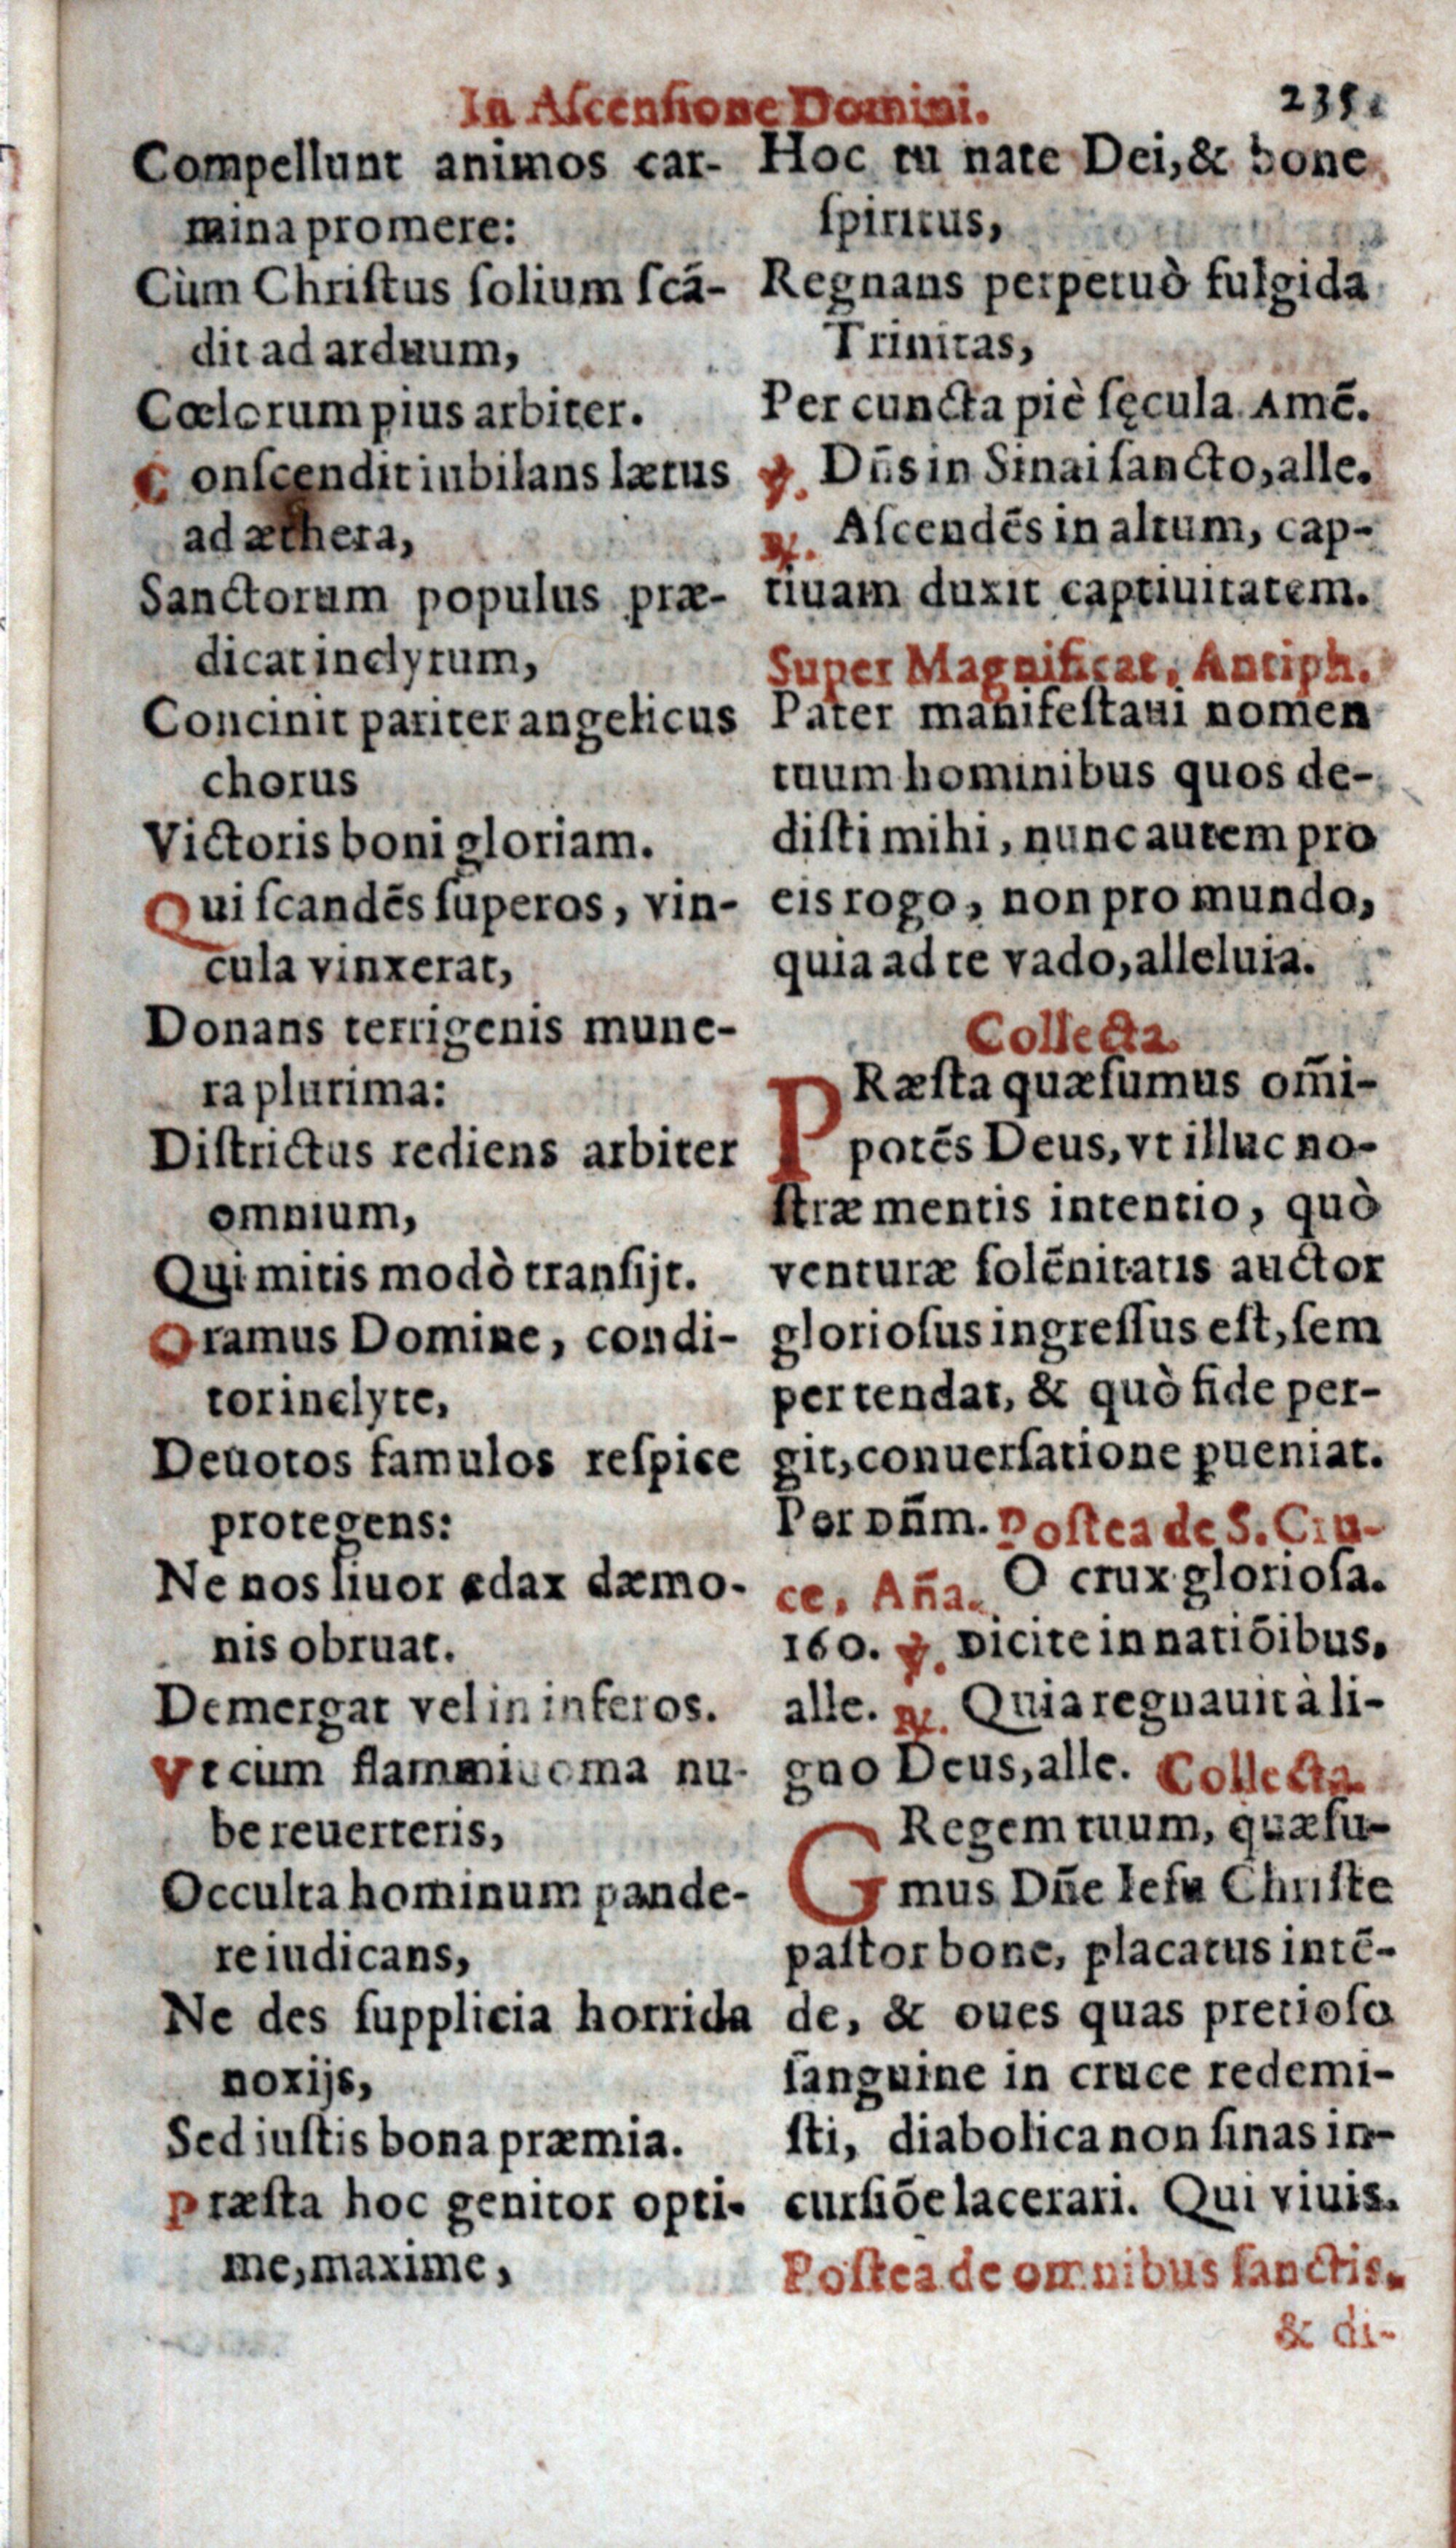 In Aſcenſione Domini.
235.
Compellunt animos car-
mina promere:
Cùm Chriſtus ſolium ſcã-
dit ad arduum,
Cœlorum pius arbiter.
Conſcendit iubilans lætus
ad æthera,
Sanctorum populus præ-
dicat inclytum,
Concinit pariter angelicus
chorus
Victoris boni gloriam.
Qui ſcandẽs ſuperos, vin-
cula vinxerat,
Donans terrigenis mune-
ra plurima:
Diſtrictus rediens arbiter
omnium,
Qui mitis modò tranſijt.
Oramus Domine, condi-
tor inclyte,
Deuotos famulos reſpice
protegens:
Ne nos liuor edax dæmo-
nis obruat.
Demergat vel in inferos.
Vt cum flammiuoma nu-
be reuerteris,
Occulta hominum pande-
re iudicans,
Ne des ſupplicia horrida
noxijs,
Sed iuſtis bona præmia.
Præſta hoc genitor opti-
me, maxime,
Hoc tu nate Dei, & bone
ſpiritus,
Regnans perpetuò fulgida
Trinitas,
Per cuncta piè ſęcula. Amẽ.
℣. Dñs in Sinai ſancto, alle.
℟. Aſcendẽs in altum, cap-
tiuam duxit captiuitatem.
Super Magnificat, Antiph.
Pater manifeſtaui nomen
tuum hominibus quos de-
diſti mihi, nunc autem pro
eis rogo, non pro mundo,
quia ad te vado, alleluia.
Collecta.
PRæſta quæſumus om̃i-
potẽs Deus, vt illuc no-
ſtræ mentis intentio, quò
venturæ ſolẽnitatis auctor
glorioſus ingreſſus eſt, ſem
per tendat, & quò fide per-
git, conuerſatione ꝑueniat.
Per Dñm. Poſtea de S. Cru-
ce, Aña. O crux glorioſa.
160. ℣. Dicite in natiõibus,
alle. ℟. Quia regnauit à li-
gno Deus, alle. Collecta.
GRegem tuum, quæſu-
mus Dñe Ieſu Chriſte
paſtor bone, placatus intẽ-
de, & oues quas pretioſo
ſanguine in cruce redemi-
ſti, diabolica non ſinas in-
curſiõe lacerari. Qui viuis.
Poſtea de omnibus ſanctis.
& di-